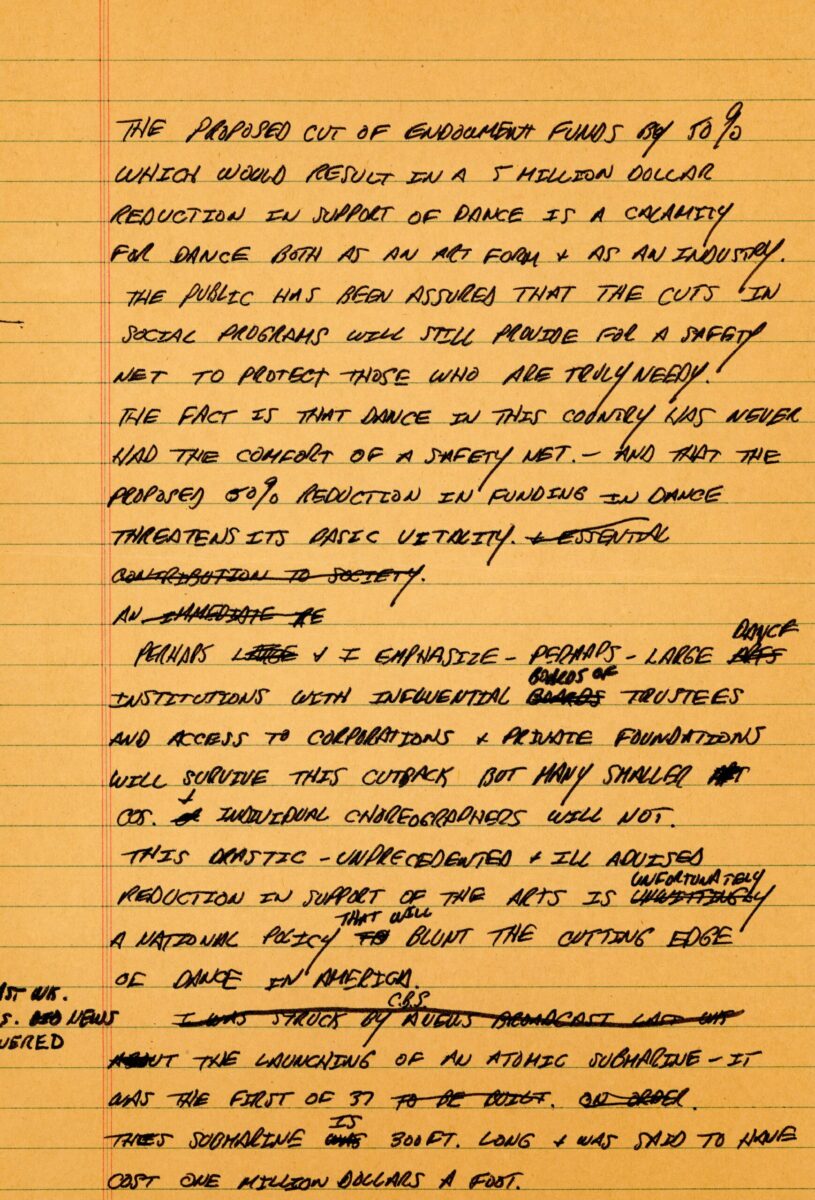 THE PROPOSED CUT OF ENDOWMENT FUNDS BY 50%
WHICH WOULD RESULT IN A 5 MILLION DOLLAR
REDUCTION IN SUPPORT OF DANCE IS A CALAMITY
FOR DANCE BOTH AS AN ART FORM + AS AN INDUSTRY.
THE PUBLIC HAS BEEN ASSURED THAT THE CUTS IN
SOCIAL PROGRAMS WILL STILL PROVIDE FOR A SAFETY
NET TO PROTECT THOSE WHO ARE TRULY NEEDY.
THE FACT IS THAT DANCE IN THIS COUNTRY HAS NEVER
HAD THE COMFORT OF A SAFETY NET. – AND THAT THE
PROPOSED 50% REDUCTION IN FUNDING IN DANCE
THREATENS ITS BASIC VITALITY. + ESSENTIAL
CONTRIBUTION TO SOCIETY.
AN IMMEDIATE RE
DANCE
PERHAPS LARGE + I EMPHASIZE – PERHAPS – LARGE ARTS
BOARDS OF
INSTITUTIONS WITH INFLUENTIAL BOARDS TRUSTEES
AND ACCESS TO CORPORATIONS + PRIVATE FOUNDATIONS
WILL SURVIVE THIS CUTBACK BUT MANY SMALLER
+
COS. INDIVIDUAL CHOREOGRAPHERS WILL NOT.
THIS DRASTIC – UNPRECEDENTED + ILL ADVISED
UNFORTUNATELY
REDUCTION IN SUPPORT OF THE ARTS IS UNWITTINGLY
THAT WILL
A NATIONAL POLICY TO BLUNT THE CUTTING EDGE
OF DANCE IN AMERICA.
AST WK.
C.B.S.
S. NEWS I WAS STRUCK BY A NEWS BROADCAST LAST WK
VERED
ABOUT THE LAUNCHING OF AN ATOMIC SUBMARINE – IT
WAS THE FIRST OF 37 TO BE BUILT. ON ORDER.
IS
THIS SUBMARINE WAS 300 FT. LONG + WAS SAID TO HAVE
COST ONE MILLION DOLLARS A FOOT.